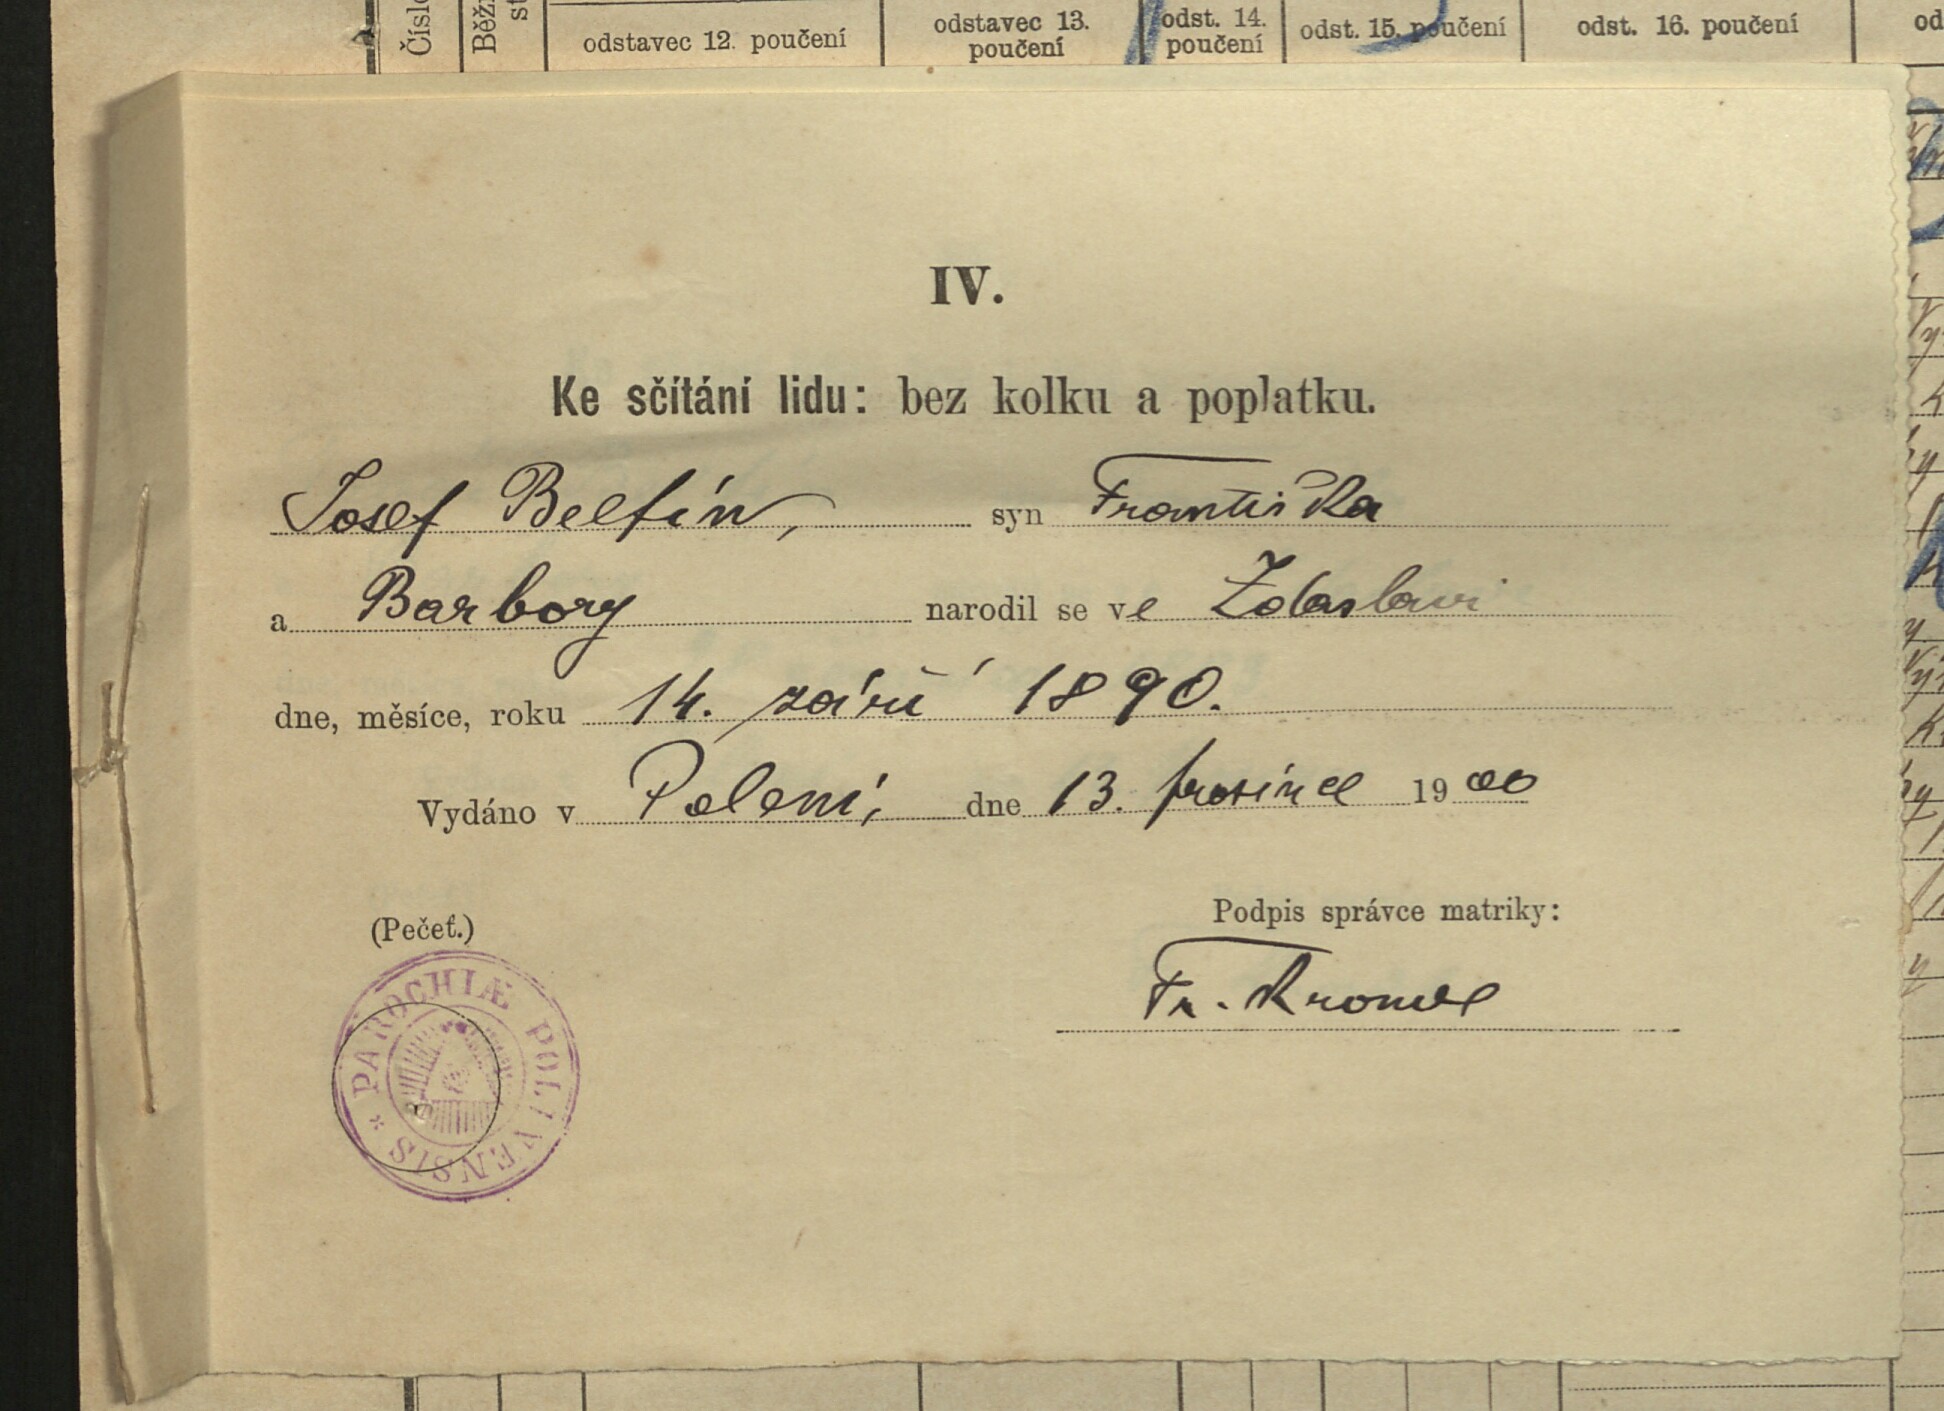 odstavec 12. poučení
odstavec 13. poučení
odst. 14. poučení
odst. 15. poučení
odst. 16. poučení
IV.
Ke sčítání lidu: bez kolku a poplatku.
Josef Belfín, syn Františka
a Barbory narodil se ve Zdaslavi
dne, měsíce, roku 14. září 1890.
Vydáno v Polení, dne 13. prosince 1900
(Pečeť.)
Podpis správce matriky:
PAROCHIÆ POLENENSIS